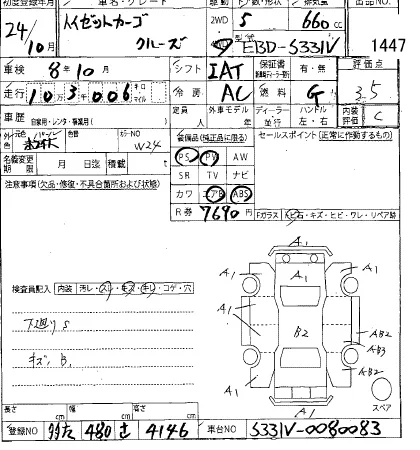 初度登録年月 車名・グレード 駆動 ドア数/形状 排気量 出品NO.
24/10月 ハイゼットカーゴ クルーズ 2WD 5 660cc
型式 EBD-S331V 1447
車検 8年10月 シフト IAT 有・無 評価点 3.5
走行 10万3千006 キロ マイル 冷房 AC 燃料 G 内装評価 C
車歴 自家用・レンタ・事業用( ) 定員 人 外車モデル 年 ディーラー 並行 ハンドル 左・右
外色 カラーNO W24 装備品(純正品に限る) セールスポイント(正常に作動するもの)
PS PW AW
名義変更期限 月 日迄 積載 t SR TV ナビ
注意事項(欠品・修復・不具合箇所および状態) カワ エアB ABS
R券 7690円 Fガラス 飛石・キズ・ヒビ・ワレ・リペア跡
A1
A1 A1
検査員記入 内装 汚レ・スレ・キズ・キレ・コゲ・穴
A1 B2 AB2
下廻りS AB3
キズ、B、 A1 AB2
A1 スペア
長さ cm 幅 cm 高さ cm
登録NO 480 さ 4146 車台NO S331V-0080083